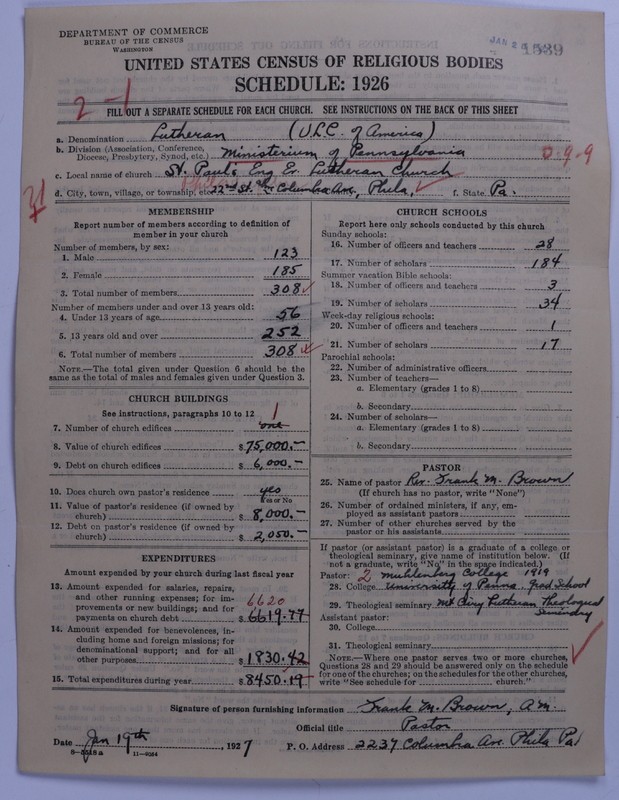 DEPARTMENT OF COMMERCE
BUREAU OF THE CENSUS
WASHINGTON
JAN 2
1539
UNITED STATES CENSUS OF RELIGIOUS BODIES
SCHEDULE: 1926
2-1
FILL OUT A SEPARATE SCHEDULE FOR EACH CHURCH. SEE INSTRUCTIONS ON THE BACK OF THIS SHEET
a. Denomination Lutheran (U.L.C. of America)
b. Division (Association, Conference, Diocese, Presbytery, Synod, etc.) Ministerium of Pennsylvania
0-9-9
c. Local name of church St. Paul's Eng. Ev. Lutheran Church
d. City, town, village, or township, etc. 22nd St. & Columbia Ave., Phila, f. State Pa.
MEMBERSHIP
Report number of members according to definition of member in your church
Number of members, by sex:
1. Male 123
2. Female 185
3. Total number of members 308
Number of members under and over 13 years old:
4. Under 13 years of age 56
5. 13 years old and over 252
6. Total number of members 308
NOTE.—The total given under Question 6 should be the same as the total of males and females given under Question 3.
CHURCH BUILDINGS
See instructions, paragraphs 10 to 12
7. Number of church edifices one 1
8. Value of church edifices $75,000.—
9. Debt on church edifices $6,000.—
10. Does church own pastor's residence yes
Yes or No
11. Value of pastor's residence (if owned by church) $8,000.—
12. Debt on pastor's residence (if owned by church) $2,050.—
EXPENDITURES
Amount expended by your church during last fiscal year
13. Amount expended for salaries, repairs, and other running expenses; for improvements or new buildings; and for payments on church debt $6619.77
6620
14. Amount expended for benevolences, including home and foreign missions; for denominational support; and for all other purposes $1830.42
15. Total expenditures during year $8450.19
CHURCH SCHOOLS
Report here only schools conducted by this church
Sunday schools:
16. Number of officers and teachers 28
17. Number of scholars 184
Summer vacation Bible schools:
18. Number of officers and teachers 3
19. Number of scholars 34
Week-day religious schools:
20. Number of officers and teachers 1
21. Number of scholars 17
Parochial schools:
22. Number of administrative officers
23. Number of teachers—
a. Elementary (grades 1 to 8)
b. Secondary
24. Number of scholars—
a. Elementary (grades 1 to 8)
b. Secondary
PASTOR
25. Name of pastor Rev. Frank M. Brown
(If church has no pastor, write "None")
26. Number of ordained ministers, if any, employed as assistant pastors
27. Number of other churches served by the pastor or his assistants
If pastor (or assistant pastor) is a graduate of a college or theological seminary, give name of institution below. (If not a graduate, write "No" in the space indicated.)
Pastor: 2 Muhlenberg College 1919
28. College University of Penna. Grad School
29. Theological seminary Mt Airy Lutheran Theological Seminary
Assistant pastor:
30. College
31. Theological seminary
NOTE.—Where one pastor serves two or more churches, Questions 28 and 29 should be answered only on the schedule for one of the churches; on the schedules for the other churches, write "See schedule for church."
Signature of person furnishing information Frank M. Brown, A.M.
Official title Pastor
Date Jan 19th, 1927 P. O. Address 2237 Columbia Ave. Phila Pa
8-5518 a 11-9084